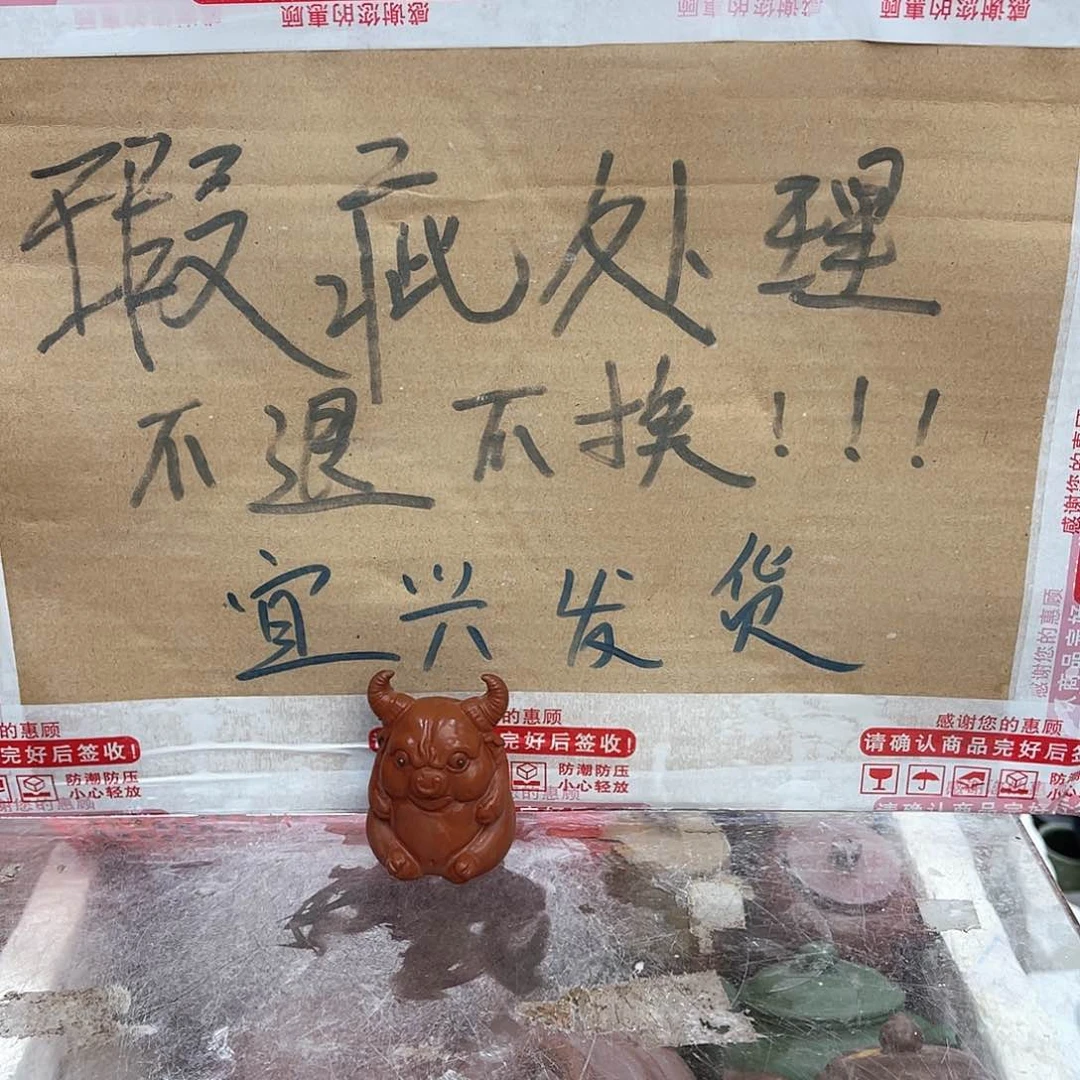 感谢您的惠顾
感谢您的惠顾
感谢您的惠顾
瑕疵处理
不退不换！！！
宜兴发货
感谢您的惠顾
感谢您的惠顾
的惠顾
完好后签收!
防潮防压
小心轻放
的惠顾
完好后签收!
防潮防压
小心轻放
感谢您的惠顾
请确认商品完好后签